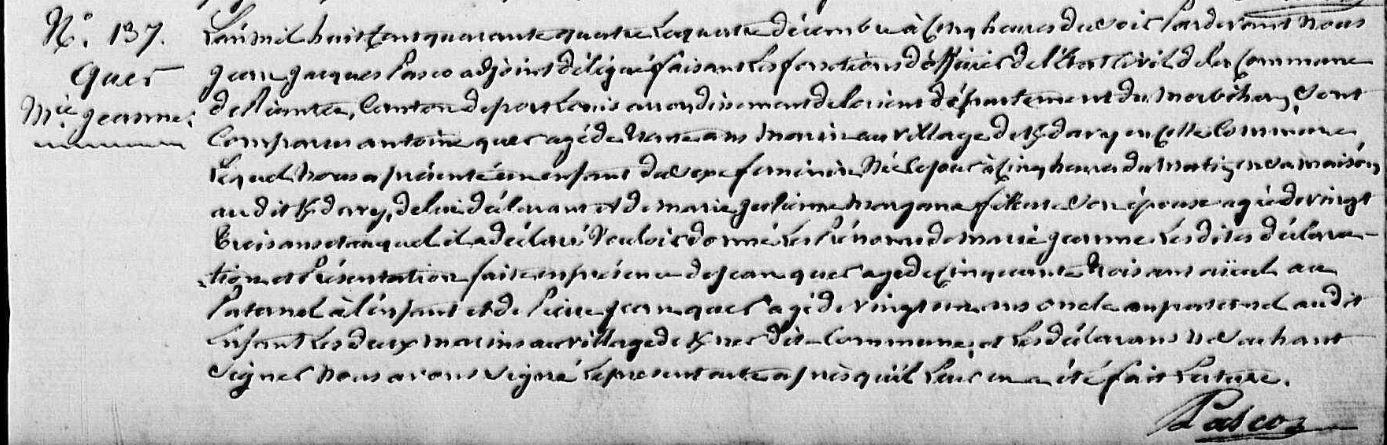 N.° 137.
Quer
M.ie jeanne.
L'an mil huit cent quarante quatre le quatre décembre à cinq heures du soir Pardevant nous
jean jacques Pasco adjoint délégué faisant les fonctions d'officier de l'Etat Civil de la Commune
de Riantec, Canton de port Louis arrondissement de lorient département du morbihan, Sont
Comparus antoine quer agé de trente ans marin au village de K/dary en cette Commune
Lequel nous a présenté un enfant du sexe feminin Né le jour à cinq heures du matin en sa maison
au dit K/dary, de lui déclarant et de marie julienne son épouse agée de vingt
trois ans et auquel il a déclaré vouloir donné les Prénoms de marie jeanne les dites déclara-
tion et Présentation faite en présence de jean quer agé de Cinquante trois ans aïeul au
Paternel à l'enfant et de Pierre jean quer agé de vingt ans oncle au paternel au dit
Enfant les deux marins au village de dit Commune, et les déclarans ne sachant
signer nous avons signé le present acte après qu'il leur en a été fait lecture.
Pasco